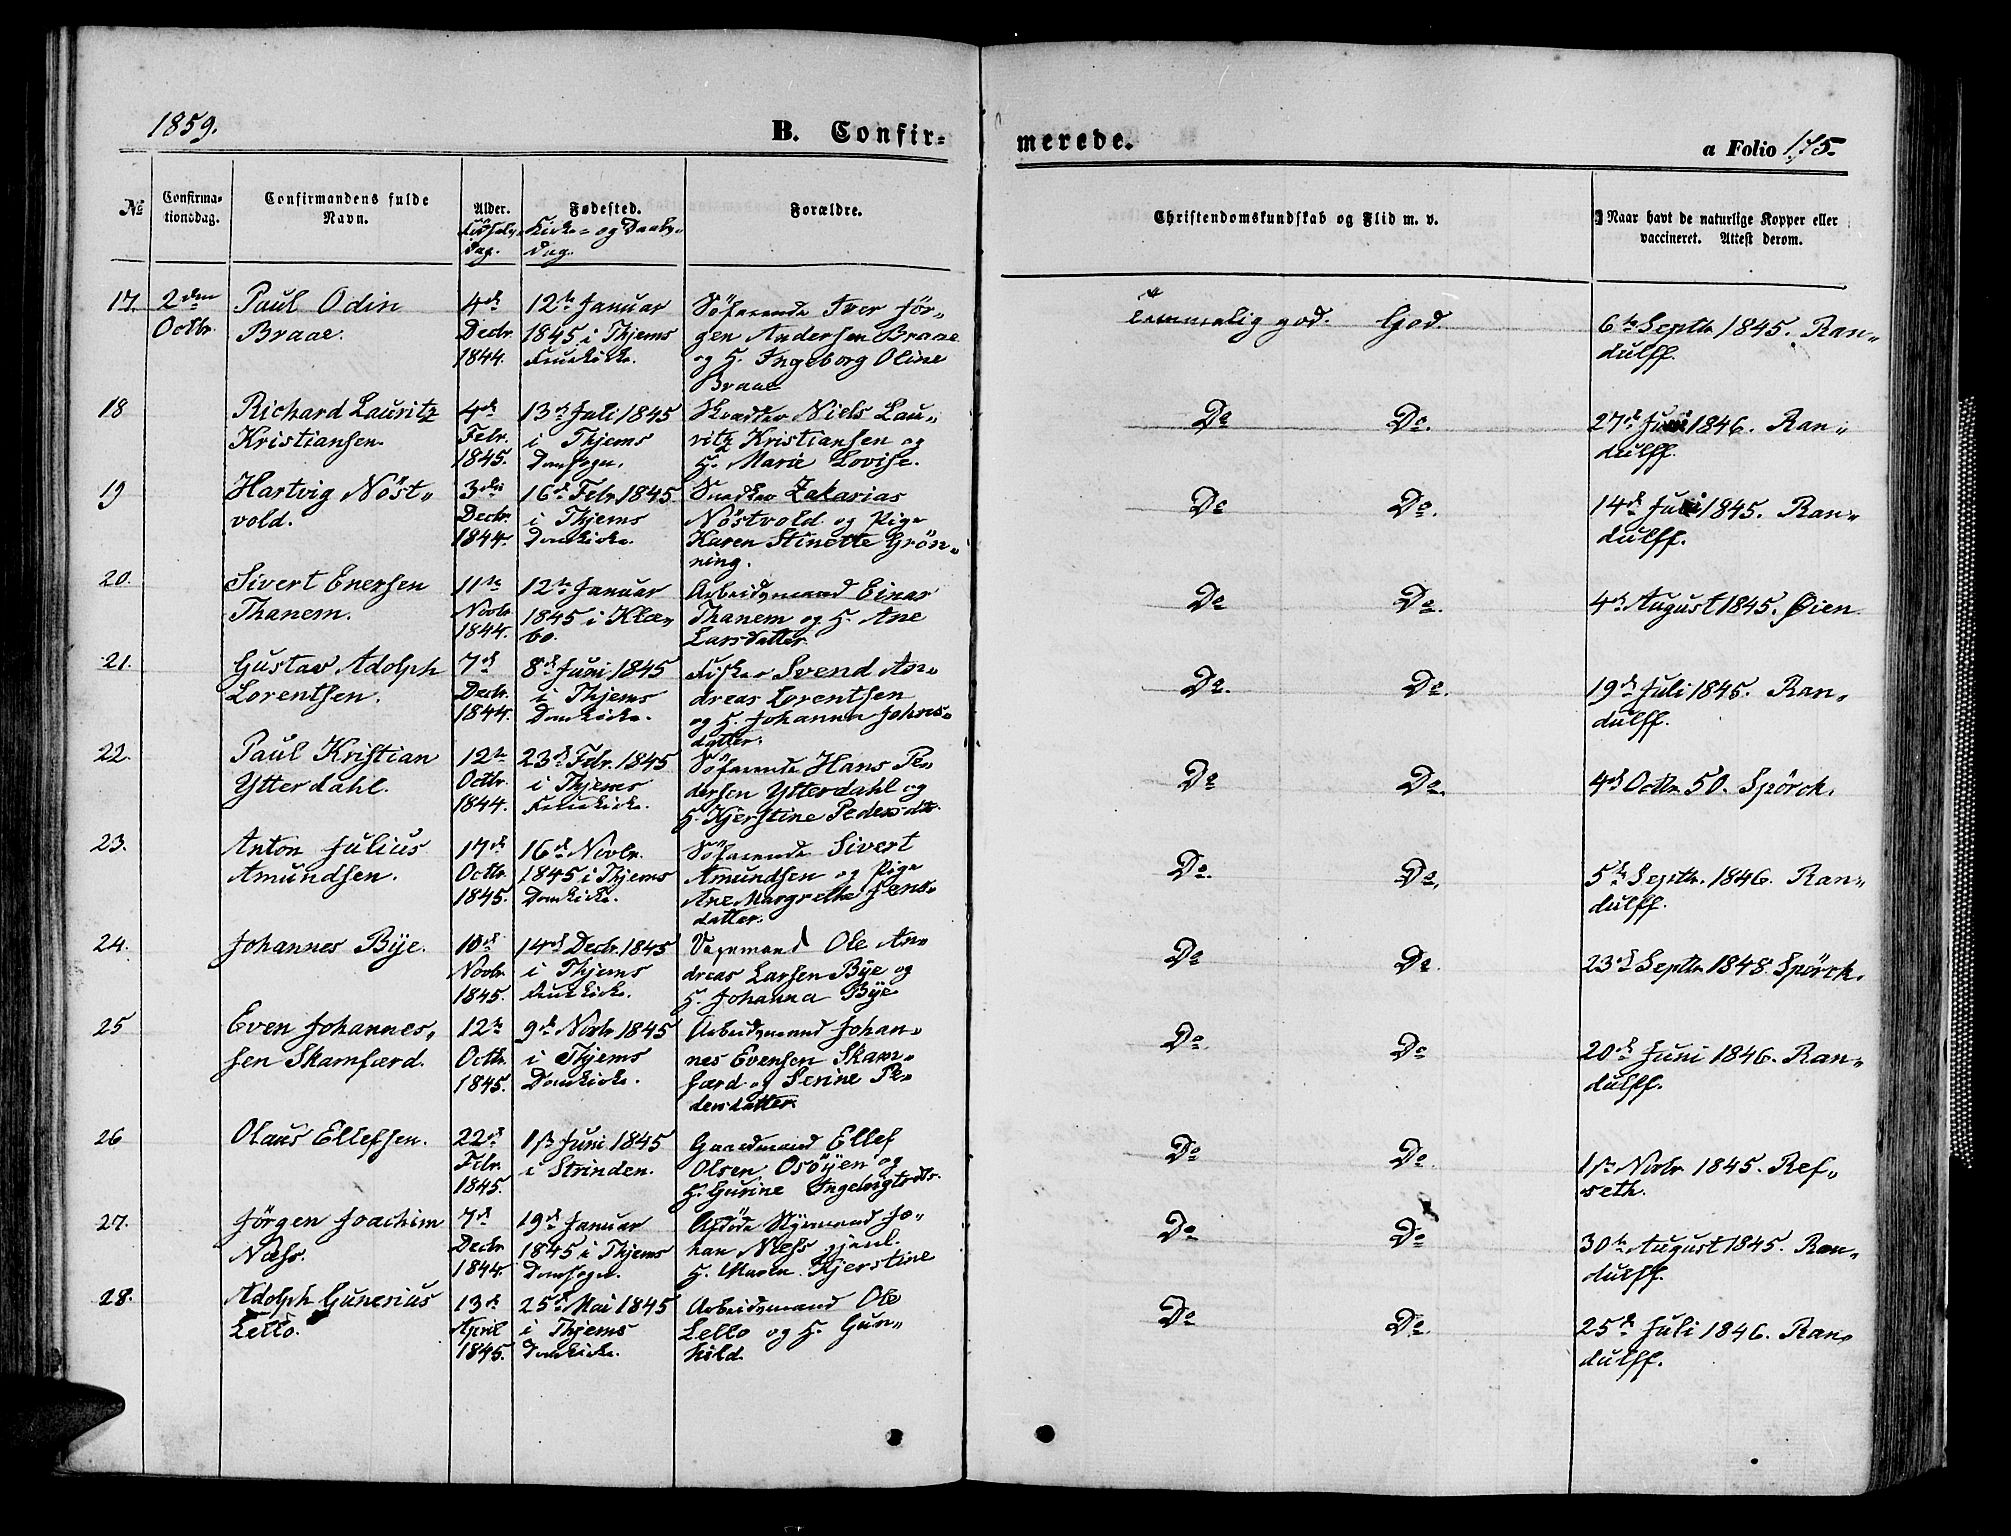 1859.
B. Confir-
merede.
a Folio 175.
No
Confirma-
tionsdag.
Confirmandens fulde
Navn.
Alder.
Fødsels-
dag.
Fødested.
Kirke- og Daabs-
dag.
Forældre.
Christendomskundskab og Flid m. v.
Naar havt de naturlige Kopper eller
vaccineret. Attest derom.
17. 2den
Octbr
Paul Odin
Braae.
4de
Decbr
1844.
12te Januar
1845 i Thjems
Fruekirke.
Söfarende Iver Jör-
gen Andersen Braae
og H. Ingeborg Oline
Braae
Temmelig god. God.
6te Septbr 1845. Ran-
dulff.
18
Richard Lauritz
Kristiansen.
4de
Febr.
1845.
13de Juli 1845
i Thjems
Domsogn.
Skrædder Niels Lau-
ritz Kristiansen og
H. Marie Lovise.
Do Do.
27de Juni 1846. Ran-
dulff.
19
Hartvig Nöst-
vold.
3die
Decbr.
1844.
16de Febr. 1845
i Thjems
Domkirke.
Snedker Zakarias
Nöstvold og Pige
Karen Stinette Grön-
ning.
Do Do.
14de Juni 1845. Ran-
dulff.
20.
Sivert Enersen
Thanem.
11te
Novbr
1844.
12te Januar
1845 i Klæ-
bo.
Arbeidsmand Einar
Thanem og H. Ane
Larsdatter.
Do Do.
4de August 1845. Øien.
21.
Gustav Adolph
Lorentsen.
7de
Decbr.
1844.
8de Juni 1845
i Thjems
Domkirke.
Fisker Svend An-
dreas Lorentsen
og H. Johanna Johns-
datter.
Do. Do.
19de Juli 1845. Ran-
dulff.
22.
Paul Kristian
Ytterdahl.
12te
Octbr.
1844.
23de Febr. 1845
i Thjems
Fruekirke.
Söfarende Hans Pe-
dersen Ytterdahl og
H. Kjerstine Pedersdtr.
Do Do.
4de Octbr 50. Spörck.
23.
Anton Julius
Amundsen.
17de
Octbr.
1845.
16de Novbr.
1845 i Thjems
Domkirke.
Söfarende Sivert
Amundsen og Pige
Ane Margrethe Jens-
datter.
Do. Do.
5te Septbr. 1846. Ran-
dulff.
24.
Johannes Bye.
10de
Novbr.
1845.
14de Decbr. 1845
i Thjems
Fruekirke.
Ole An-
dreas Larsen Bye og
H. Johanna Bye
Do Do.
23de Septbr 1848. Spörck.
25
Even Johannes-
sen Skamfærd.
12te
Octbr.
1845.
9de Novbr 1845
i Thjems
Domkirke.
Arbeidsmand Johan-
nes Evensen Skam-
færd og Serine Pe-
dersdatter.
Do. Do
20de Juni 1846. Ran-
dulff.
26
Olaus Ellefsen.
22de
Febr.
1845.
1ste Juni 1845
i Strinden.
Gaardmand Ellef
Olsen Osöyen og
H. Gurine Ingebrigtsdtr.
Do Do.
1ste Novbr 1845. Ref-
seth.
27.
Jörgen Joachim
Næss.
7de
Decbr
1844.
19de Januar
1845 i Thjems
Domsogn.
Afdöde Styrmand Jo-
han Næss
H. Maren Kjerstine
Do Do
30te August 1845. Ran-
dulff.
28.
Adolph Gunerius
Lello.
13de
April
1845.
25de Mai 1845
i Thjems
Domkirke.
Arbeidsmand Ole
Lello og H. Gun-
hild.
Do Do.
25de Juli 1846. Ran-
dulff.